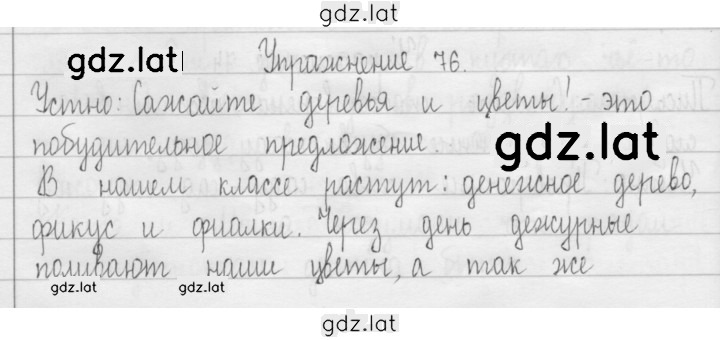 gdz.lat
gdz.lat
Упражнение 76.
Устно: Сажайте деревья и цветы! - это
побудительное предложение.
gdz.lat
В нашем классе растут: денежное дерево,
фикус и фиалки. Через день дежурные
поливают наши цветы, а так же
gdz.lat
gdz.lat
gdz.lat